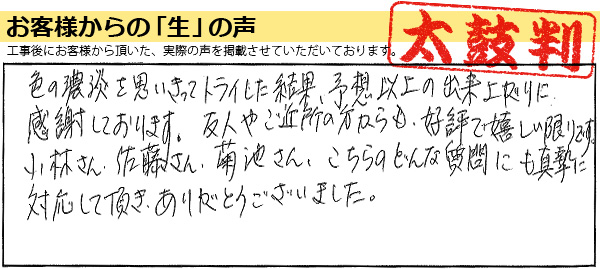 お客様からの「生」の声
工事後にお客様から頂いた、実際の声を掲載させていただいております。
太鼓判
色の濃淡を思いきってトライした結果、予想以上の出来上がりに
感謝しております。友人やご近所の方からも、好評で嬉しい限りです。
小林さん、佐藤さん、菊池さん、こちらのどんな質問にも真摯に
対応して頂き、ありがとうございました。